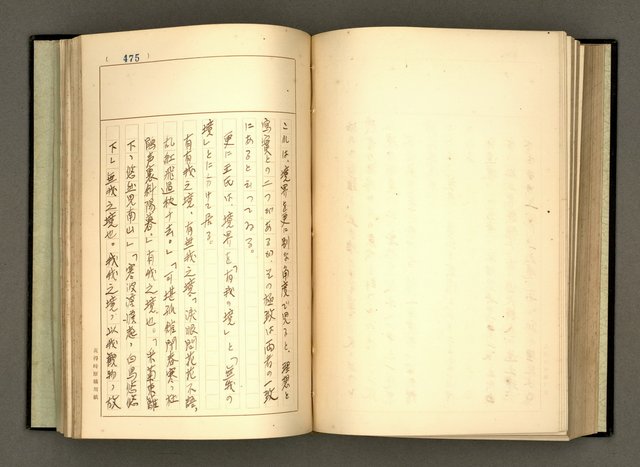 (475)
これは、境界を更に別な角度で見ると、理想と
寫実との二つがあるが、その極致は両者の一致
にあるともってゐる。
更に王氏は境界を「有我の境」と「無我の
境」とに分けて居る。
有有我之境、有無我之境。「淚眼問花花不語、
乱紅飛過秋千去。」「可堪孤館閉春寒、杜
鵑声裏斜陽暮。」有我之境也。「采菊東籬
下、悠然見南山」「寒波澹澹起、白鳥悠悠
下」無我之境也。有我之境、以我觀物、故
吉得時原稿用紙